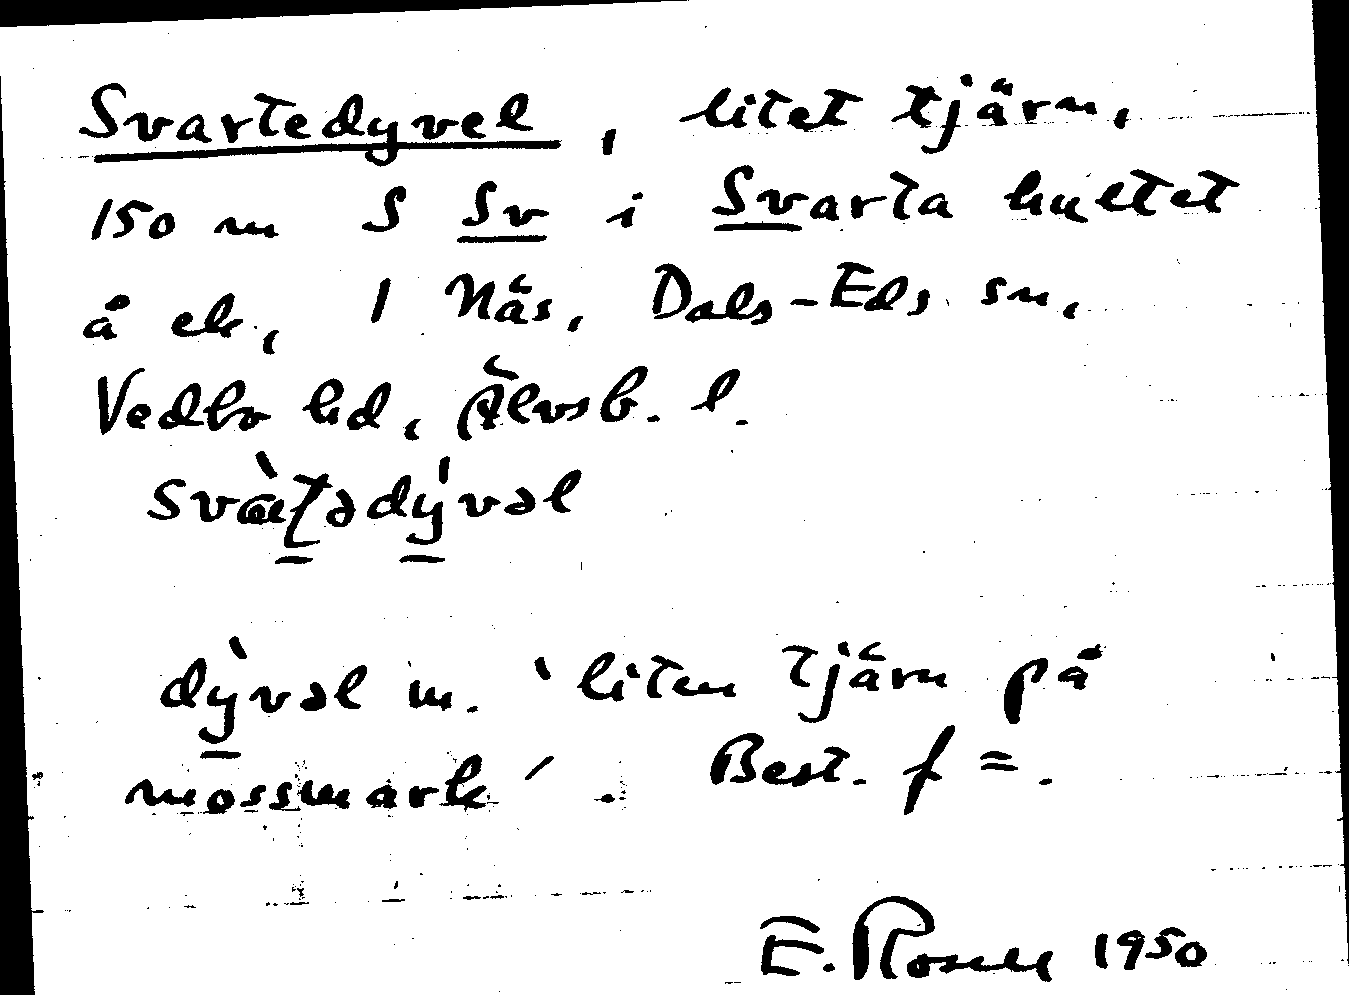 Svartedyvel, litet tjärn,
150 m S Sv i Svarta hultet
å ek., 1 Näs, Dals-Eds sn,
Vedbo hd, Älvsb. l.
dỳvəl m. 'liten tjärn på
mossmark'. Best. f =.
E. Rosell 1950